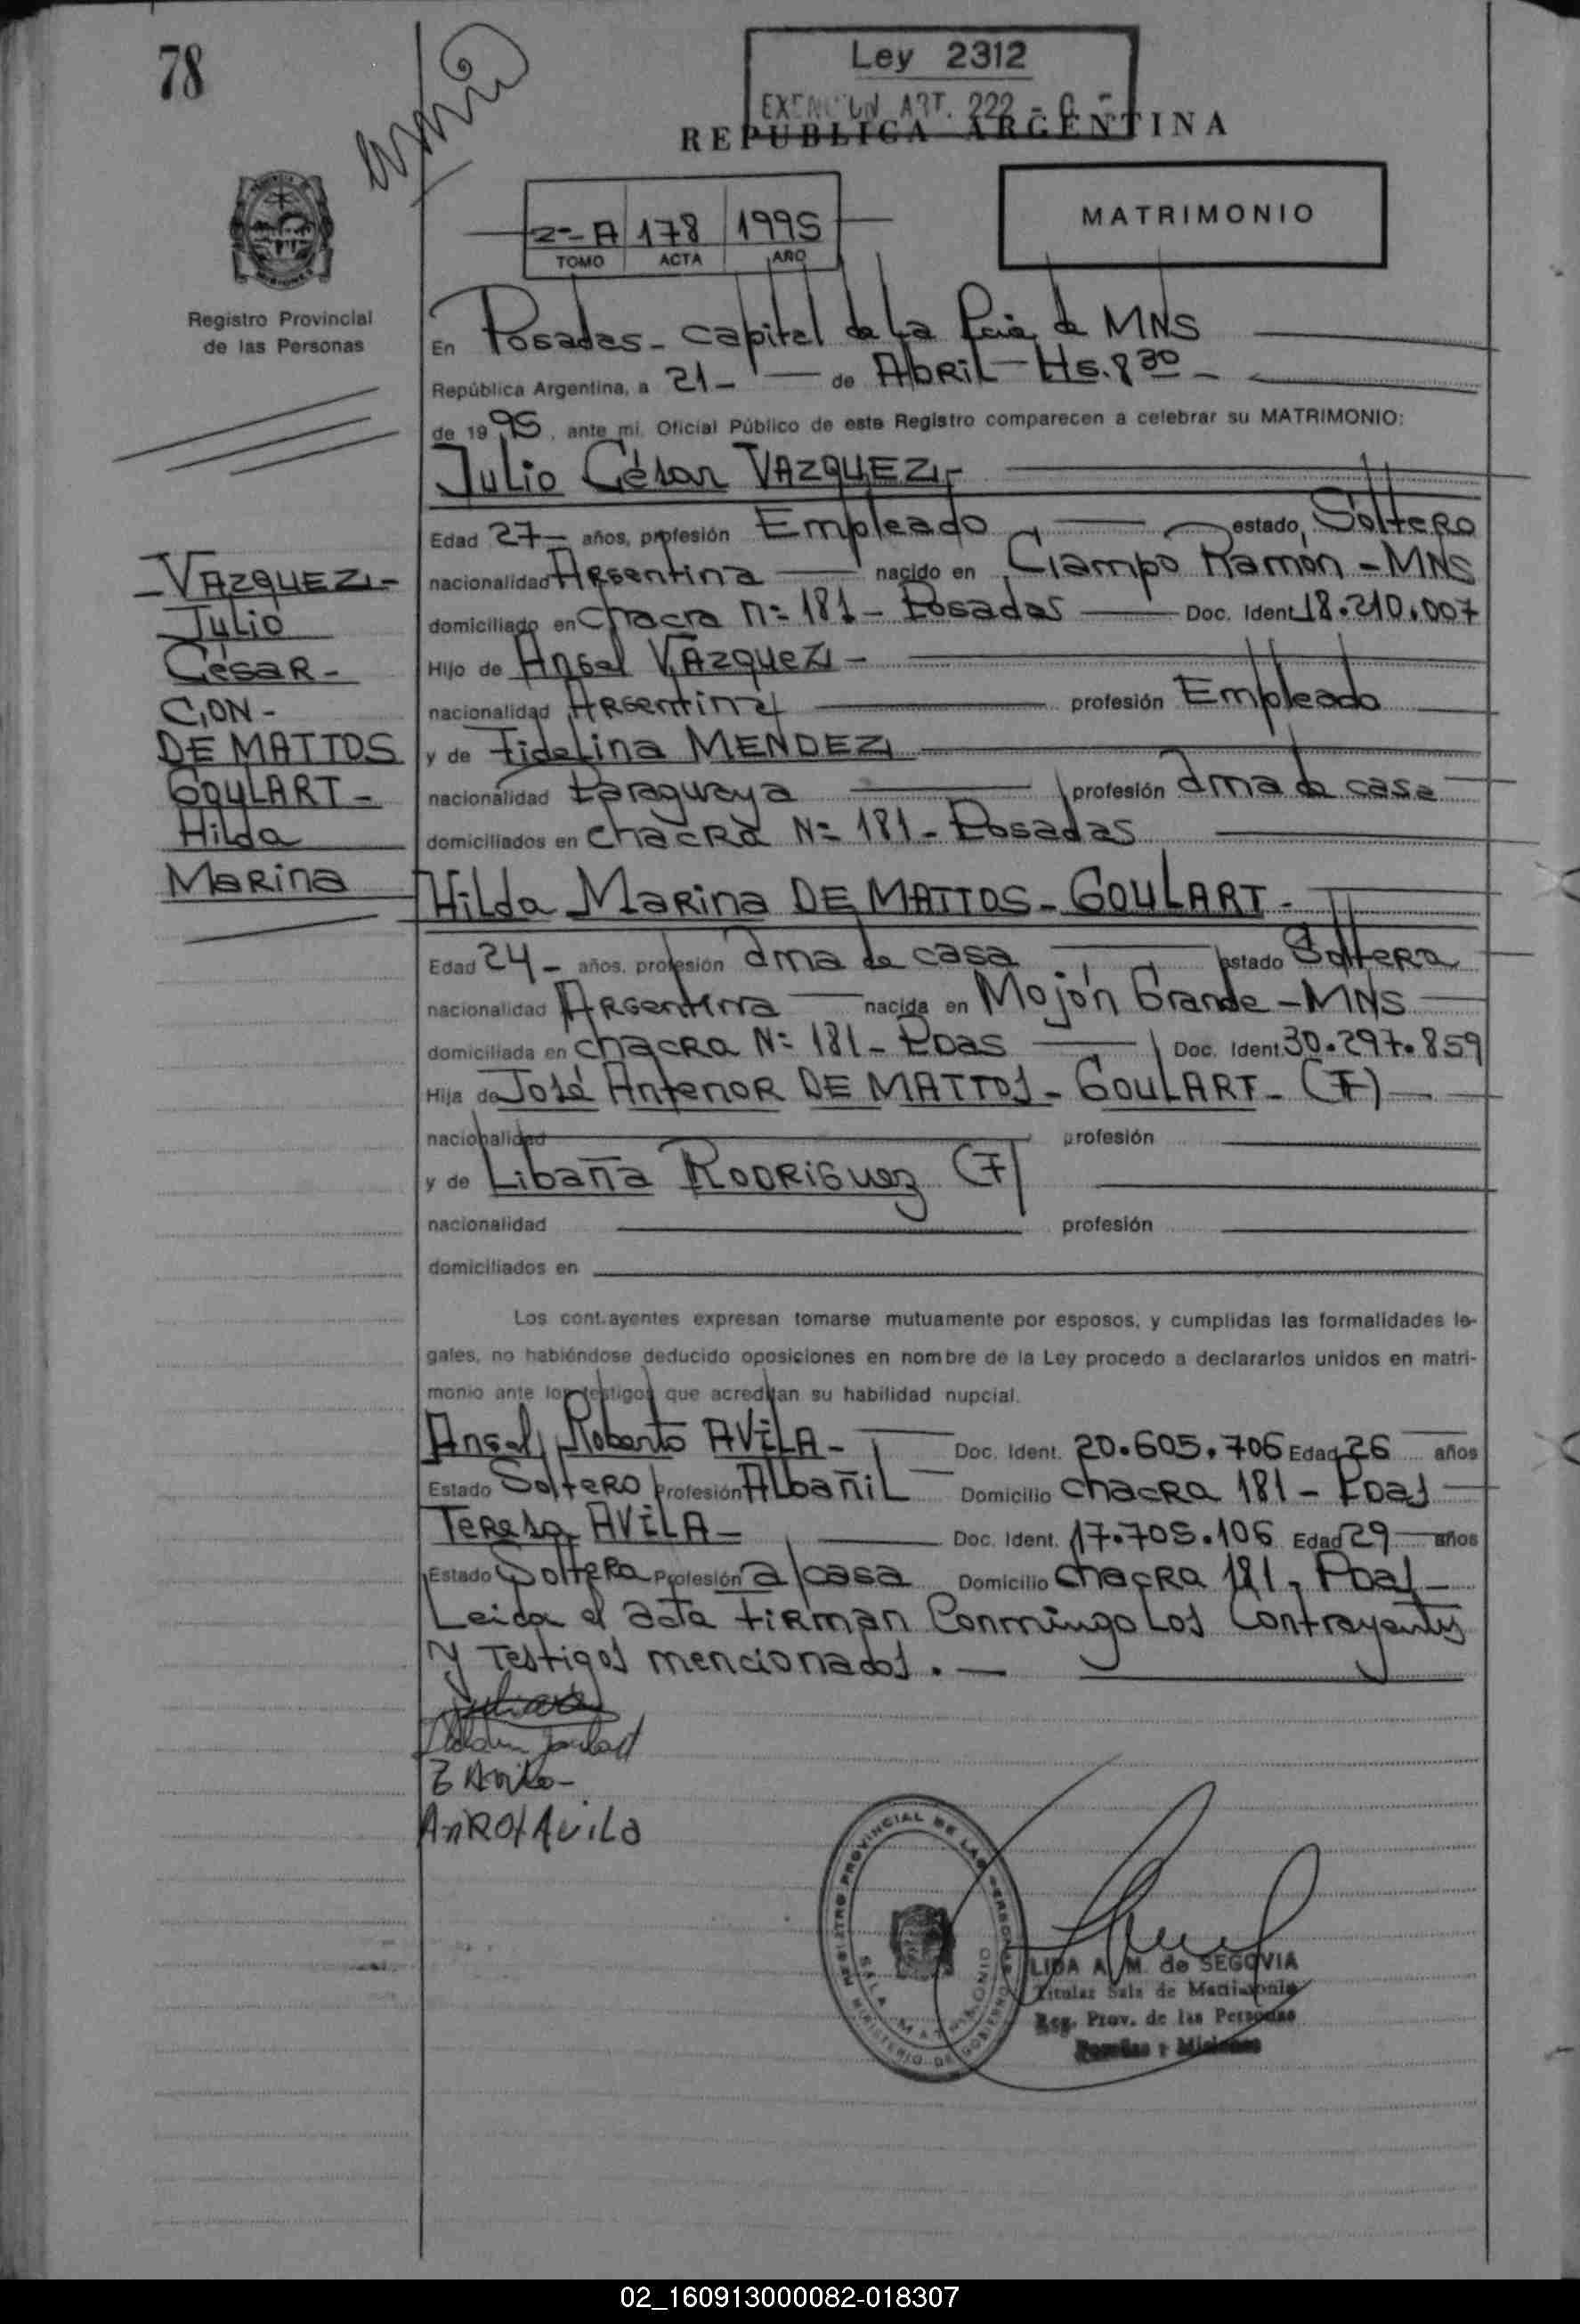 78
Ley 2312
EXENCION ART. 222 - 0 -
REPUBLICA ARGENTINA
MATRIMONIO
2º- A 178 1995
TOMO ACTA AÑO
Registro Provincial
de las Personas
En Posadas - capital de la Pcia de MNS
República Argentina, a 21 - de Abril - Hs. 8 30 -
de 19 95, ante mi, Oficial Público de este Registro comparecen a celebrar su MATRIMONIO:
Julio César VAZQUEZ -
Edad 27 - años, profesión Empleado estado Soltero
nacionalidad Argentina nacido en Campo Ramón - MNS
domiciliado en chacra Nº 181 - Posadas Doc. Ident. 18.210.007
Hijo de Angel VAZQUEZ -
nacionalidad Argentina profesión Empleado
y de Fidelina MENDEZ
nacionalidad Paraguaya profesión ama de casa
domiciliados en chacra Nº 181 - Posadas
- VAZQUEZ -
Julio
César -
CON -
DE MATTOS
GOULART -
Hilda
Marina
Hilda Marina DE MATTOS - GOULART -
Edad 24 - años, profesión ama de casa estado Soltera
nacionalidad Argentina nacida en Mojón Grande - MNS
domiciliada en chacra Nº 181 - Pdas Doc. Ident. 30.297.859
Hija de José Antenor DE MATTOS - GOULART - (F)
nacionalidad profesión
y de Libaña RODRIGUEZ (F)
nacionalidad profesión
domiciliados en
Los contrayentes expresan tomarse mutuamente por esposos, y cumplidas las formalidades le-
gales, no habiéndose deducido oposiciones en nombre de la Ley procedo a declararlos unidos en matri-
monio ante los testigos que acreditan su habilidad nupcial.
Angel Roberto AVILA - Doc. Ident. 20.605.706 Edad 26 años
Estado Soltero Profesión Albañil Domicilio chacra 181 - Pdas
Teresa AVILA - Doc. Ident. 17.705.106 Edad 29 años
Estado Soltera Profesión a/casa Domicilio chacra 181 - Pdas -
Leida el acta firman conmigo los contrayentes
y testigos mencionados. -
AnROX AviLa
REGISTRO PROVINCIAL DE LAS PERSONAS
SALA MATRIMONIO
MINISTERIO DE GOBIERNO
LIDA A. M. de SEGOVIA
Titular Sala de Matrimonio
Reg. Prov. de las Personas
Posadas - Misiones
02_160913000082-018307